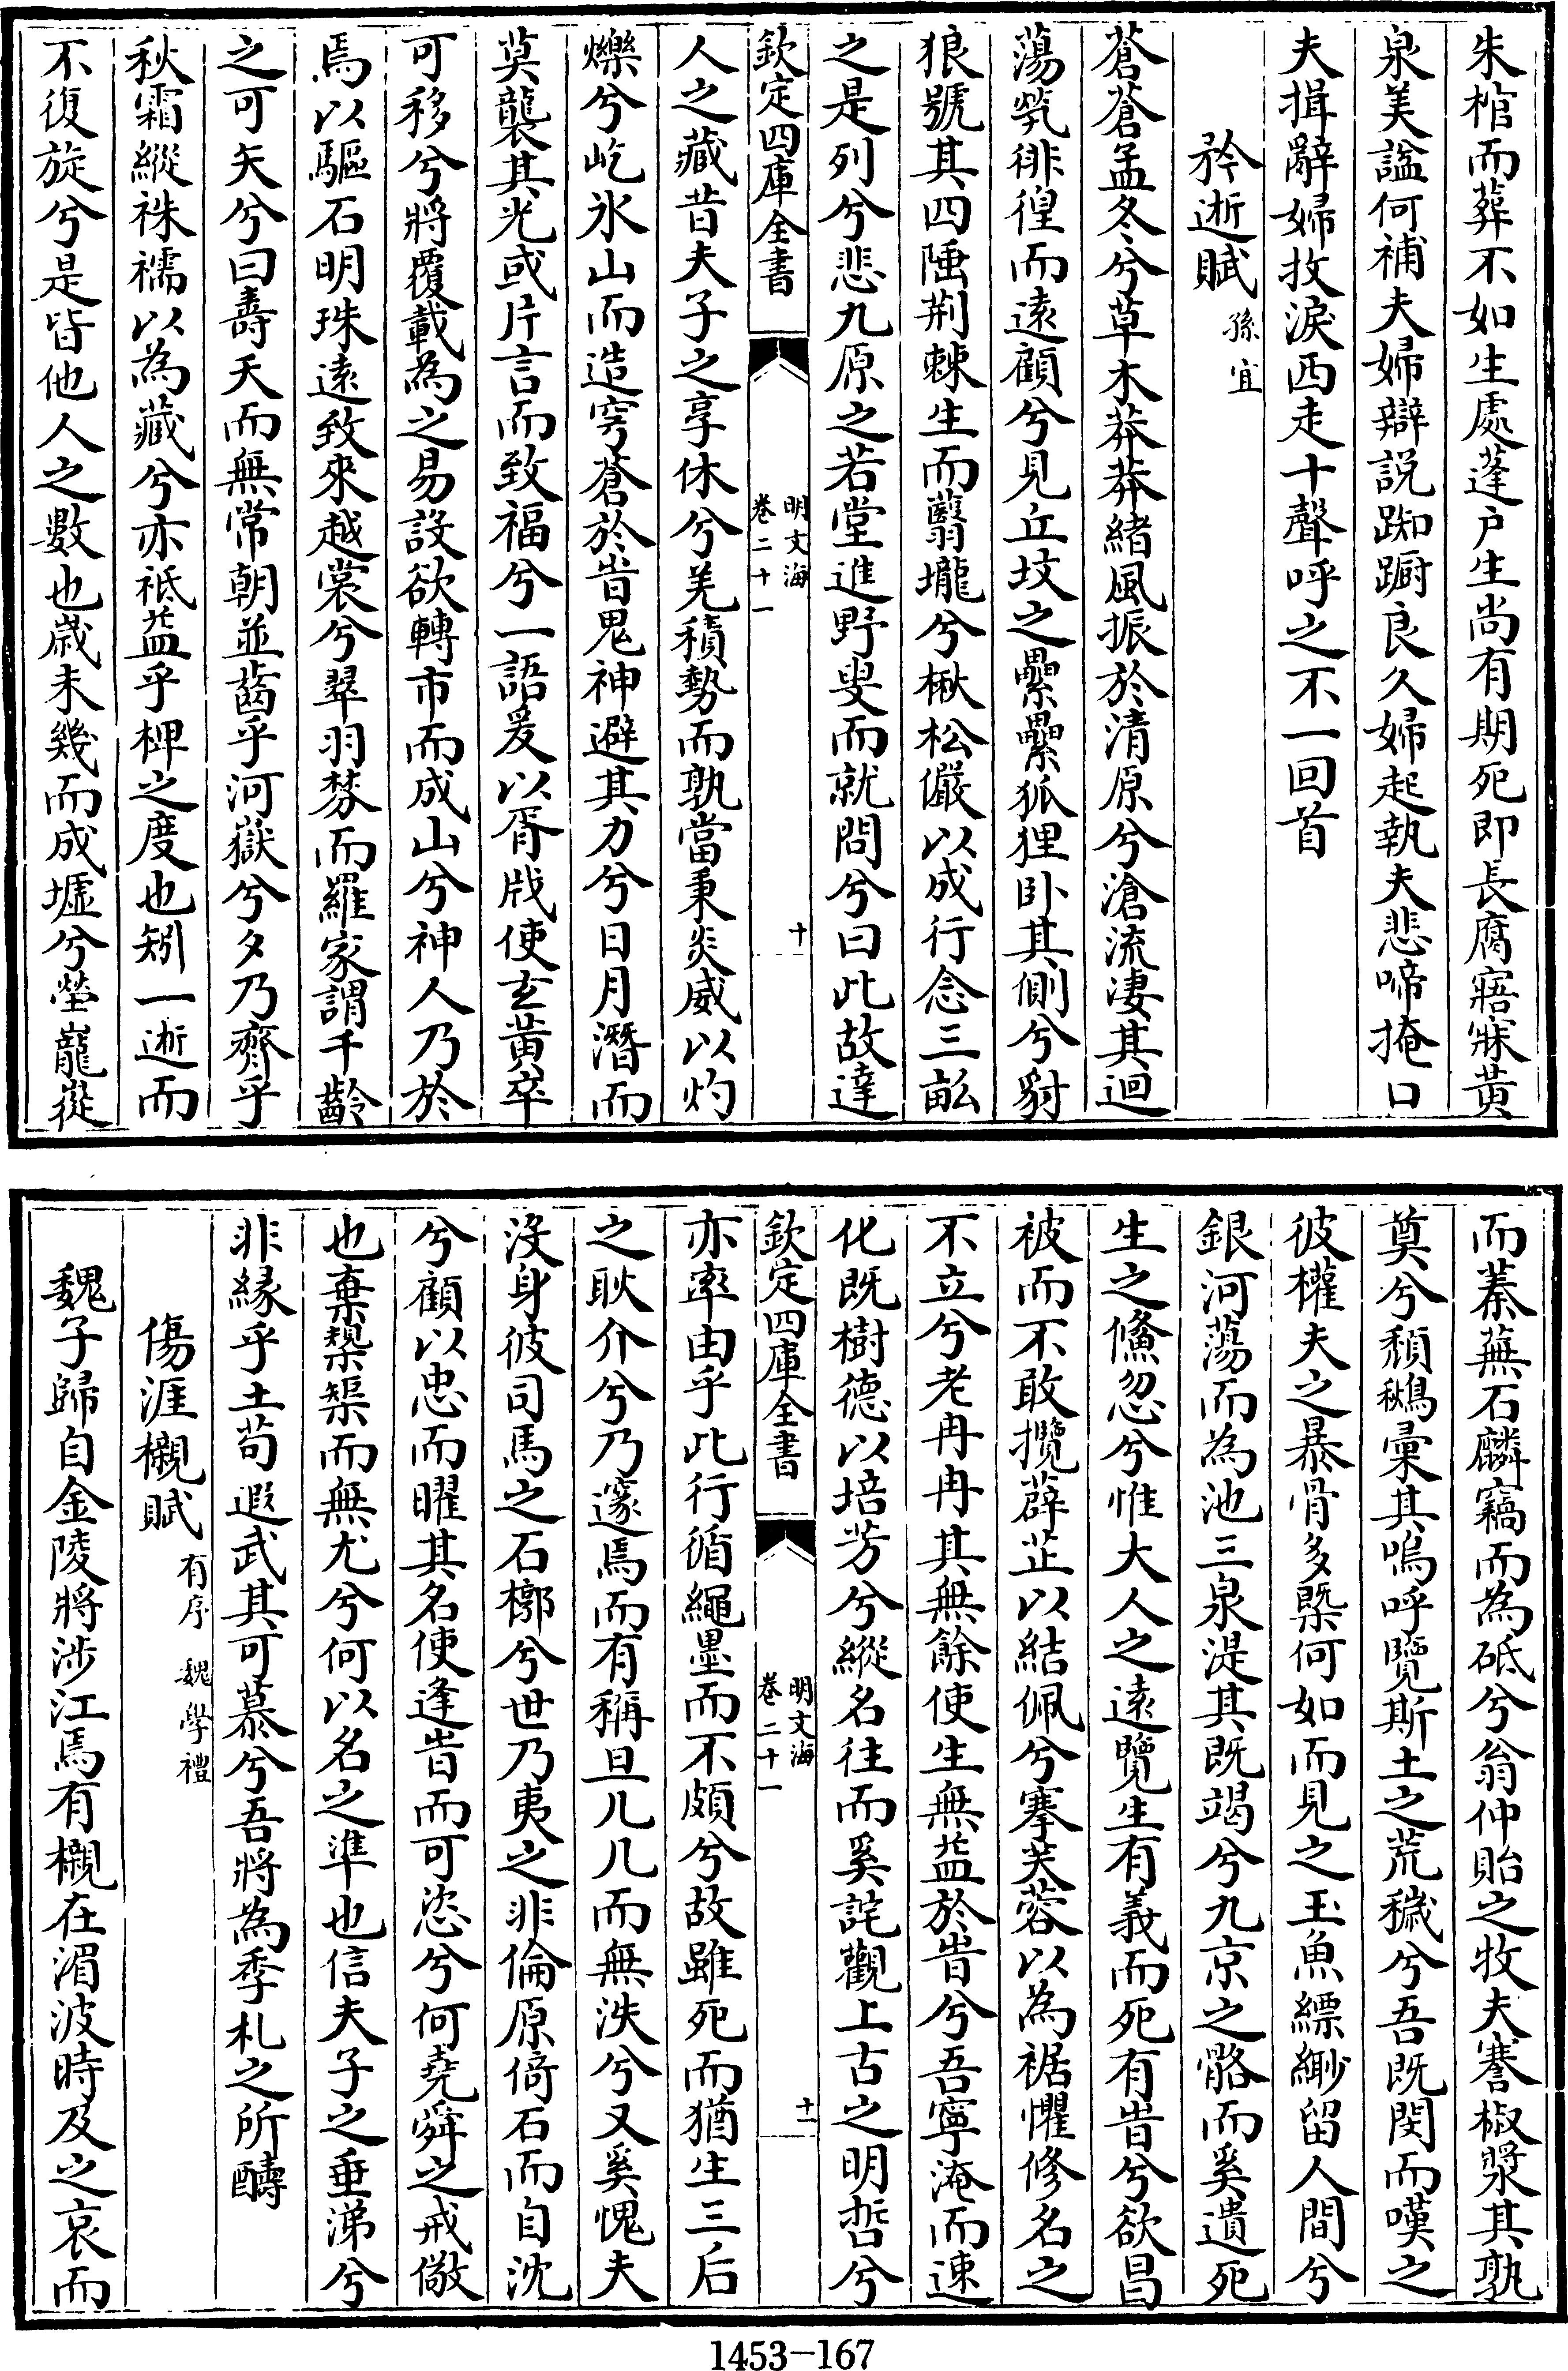 朱棺而葬不如生處蓬户生尚有期死即長腐寤寐黄
泉美謚何補夫婦辯説踟蹰良久婦起執夫悲啼掩口
夫揖辭婦抆淚西走十聲呼之不一回首
矜逝賦 孫宜
蒼蒼孟冬兮草木莽莽緒風振於清原兮滄流淒其迴
蕩煢徘徨而遠顧兮見丘坟之纍纍狐狸卧其側兮豺
狼號其四陲荆棘生而翳壠兮楸松儼以成行念三畆
之是列兮悲九原之若堂進野叟而就問兮曰此故達
欽定四庫全書 明文海 卷二十一 十
人之藏昔夫子之享休兮羌積勢而孰當秉炎威以灼
爍兮屹氷山而造穹蒼於旹鬼神避其力兮日月潛而
莫襲其光或片言而致福兮一語爰以胥戕使玄黄卒
可移兮將覆載為之易設欲轉市而成山兮神人乃於
焉以驅石明珠遠致來越裳兮翠羽棼而羅家謂千齡
之可矢兮曰壽夭而無常朝並齒乎河嶽兮夕乃齊乎
秋霜縱袾襦以為藏兮亦祇益乎椑之度也矧一逝而
不復旋兮是皆他人之數也歲未幾而成墟兮塋巃嵸
而蓁蕪石麟竊而為砥兮翁仲貽之牧夫蹇椒漿其孰
奠兮頹鶖彙其嗚呼覽斯土之荒穢兮吾既閔而嘆之
彼權夫之暴骨多槩何如而見之玉魚縹緲留人間兮
銀河蕩而為池三泉湜其既竭兮九京之骼而奚遺死
生之儵忽兮惟大人之遠覽生有義而死有旹兮欲昌
被而不敢攬薜芷以結佩兮搴芙蓉以為裾懼修名之
不立兮老冉冉其無餘使生無益於旹兮吾寧淹而速
化既樹德以培芳兮縱名往而奚詫觀上古之明哲兮
欽定四庫全書 明文海 卷二十一 十一
亦率由乎此行循繩墨而不頗兮故雖死而猶生三后
之耿介兮乃邃焉而有稱旦几几而無泆兮又奚愧夫
沒身彼司馬之石槨兮世乃夷之非倫原倚石而自沈
兮顧以忠而曜其名使逢旹而可恣兮何堯舜之戒儆
也棄槼榘而無尤兮何以名之準也信夫子之垂涕兮
非緣乎土苟遐武其可慕兮吾將為季札之所醻
傷涯櫬賦 有序 魏學禮
魏子歸自金陵將涉江焉有櫬在湄波時及之哀而
1453-167